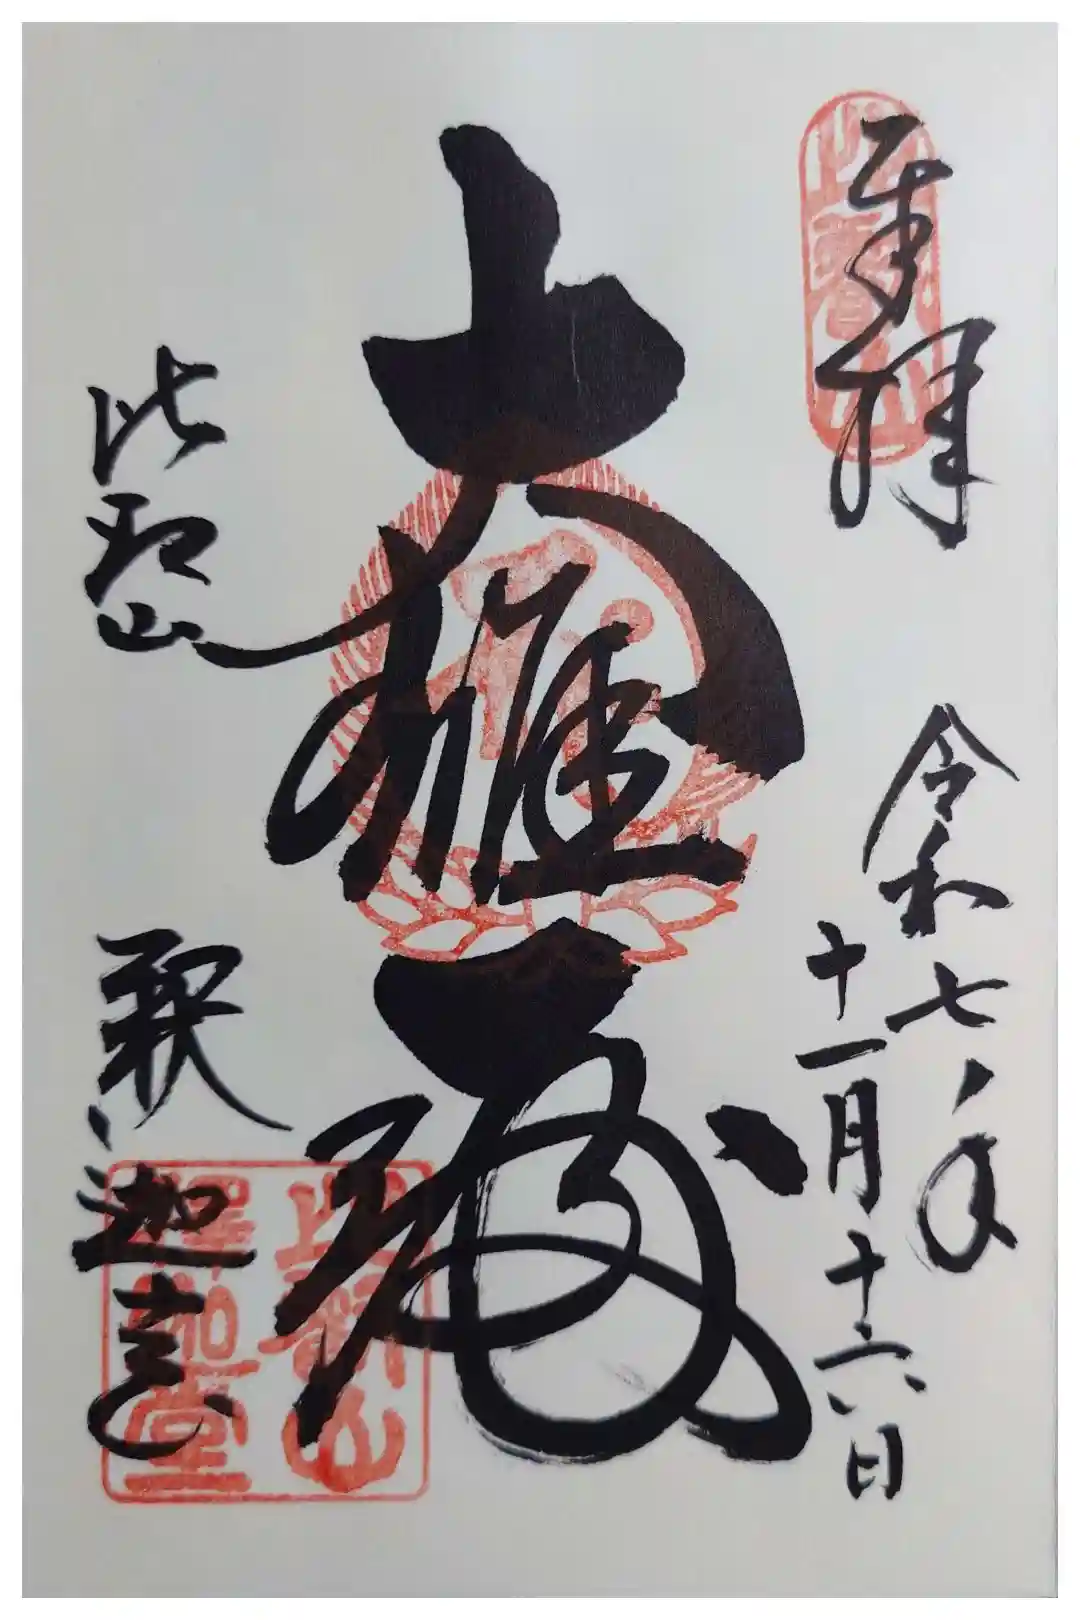 奉拝
令和七年
十一月十六日
大雄殿
比叡山 釈迦堂
比叡山
釋迦堂